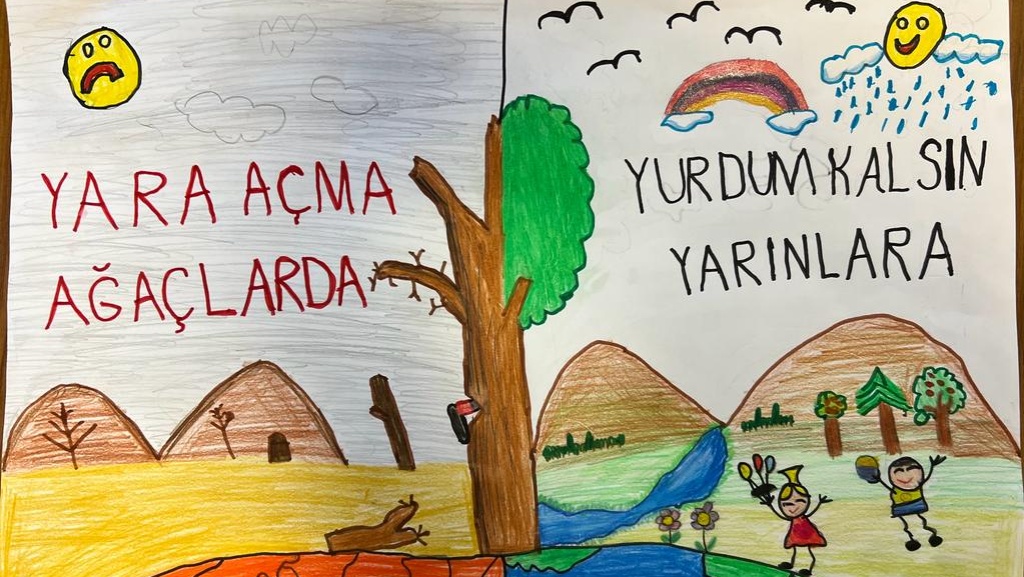 YARA AÇMA
AĞAÇLARDA
YURDUM KALSIN
YARINLARA